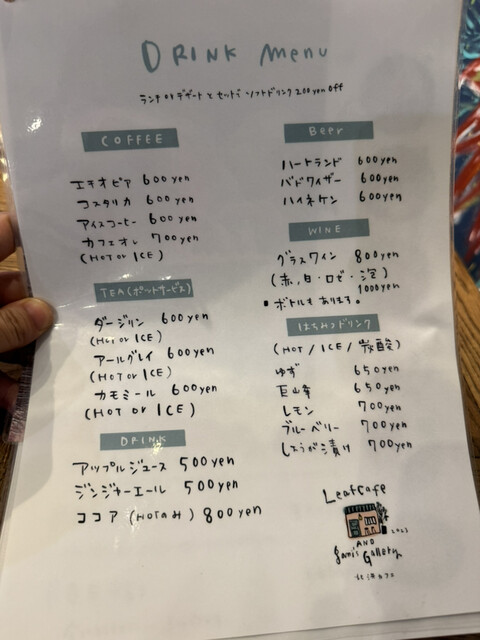 DRINK menu
ランチ or デザートとセットで ソフトドリンク 200yen off
COFFEE
エチオピア 600yen
コスタリカ 600yen
アイスコーヒー 600yen
カフェオレ 700yen
(HOT or ICE)
TEA(ポットサービス)
ダージリン 600yen
(HOT or ICE)
アールグレイ 600yen
(HOT or ICE)
カモミール 600yen
(HOT or ICE)
DRINK
アップルジュース 500yen
ジンジャーエール 500yen
ココア (HOTのみ) 800yen
Beer
ハートランド 600yen
バドワイザー 600yen
ハイネケン 600yen
WINE
グラスワイン 800yen
(赤,白・ロゼ・泡)
1000yen
・ボトルもあります。
はちみつドリンク
(HOT/ICE/炭酸)
ゆず 650yen
巨山峯 650yen
レモン 700yen
ブルーベリー 700yen
しょうが漬け 700yen
Leaf Cafe
AND
Gallery